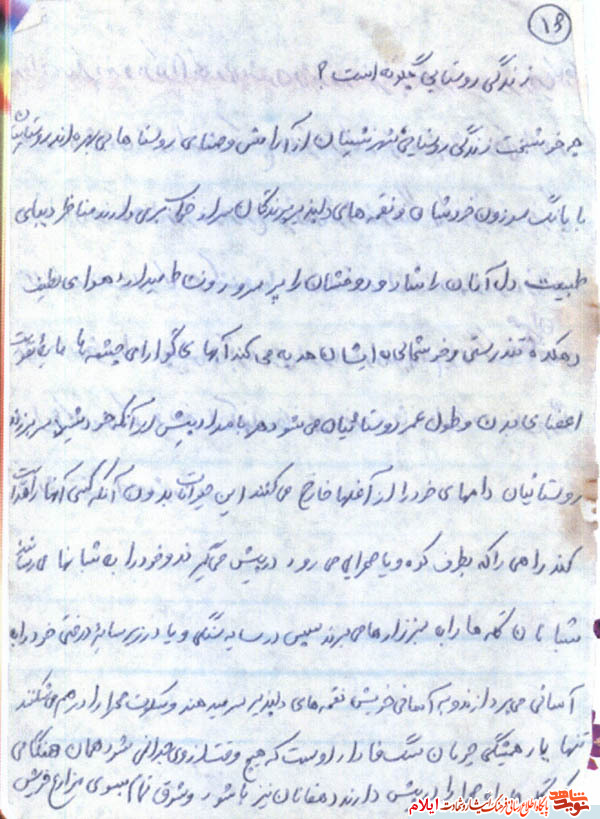 ۱۶
زندگی روستایی چگونه است؟
چه خوشبخت زندگی روستایی شهرنشینان از آرامش و صفای روستاها بی بهره اند روستاییان
با بانگ موزون خروسان و نغمه های دلپذیر پرندگان سر از خواب بر می دارند مناظر زیبای
طبیعت دل آنان را شاد و روحشان را پر سرور و نشاط میدارد هوای لطیف
دهکده تندرستی و خوشحالی به ایشان هدیه می کند آبهای گوارای چشمه ها مایه تقویت
اعضای بدن و طول عمر روستائیان می شود هر بامداد پیش از آنکه خورشید سر برزند
روستائیان دامهای خود را از آغلها خارج می کنند این حیوانات بدون آنکه کسی آنها را هدایت
کند راهی را که بطرف کوه و یا صحرا می رود در پیش می گیرند و خود را به شبانها می رسانند
شبانان گله ها را به سبزه زارها می برند سپس در سایه سنگی و یا در زیر سایه درختی خود را به
آسانی می پردازند و به آسانی خویش نغمه های دلپذیر سر میدهند و سکوت صحرا را در هم می شکنند
تنها یار همیشگی چوپان سگ وفادار اوست که هیچ وقت از وی جدا نمی شود همان هنگامی
که گله راه صحرا را در پیش دارند دهقانان نیز با شور و شوق تمام بسوی مزارع خویش
نوید شاهد
پایگاه اطلاع رسانی فرهنگ ایثار و شهادت ایلام